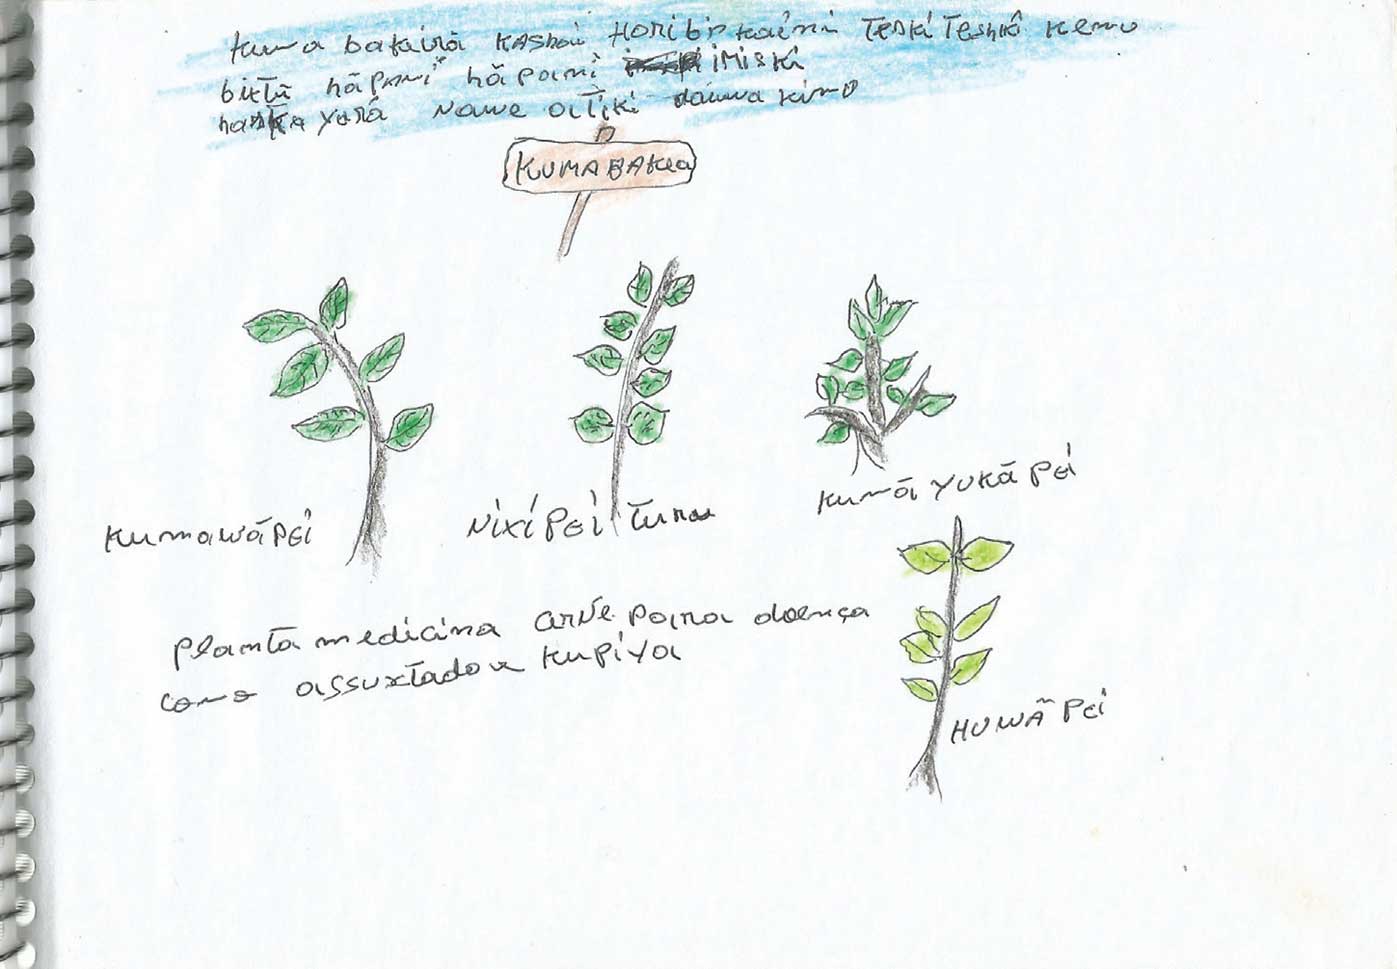 kuma bakairã kashai Horibi kaini Teski Teshkê kemo
bitã hãpani hãpani imiski
haska yurá nawe atiki dauwa kino
KUMABAKea
kumawãpei
nixi pei Tuna
kumã yukã pei
planta medicina arve para doença
como assuxtado e kupiya
Huwã pei